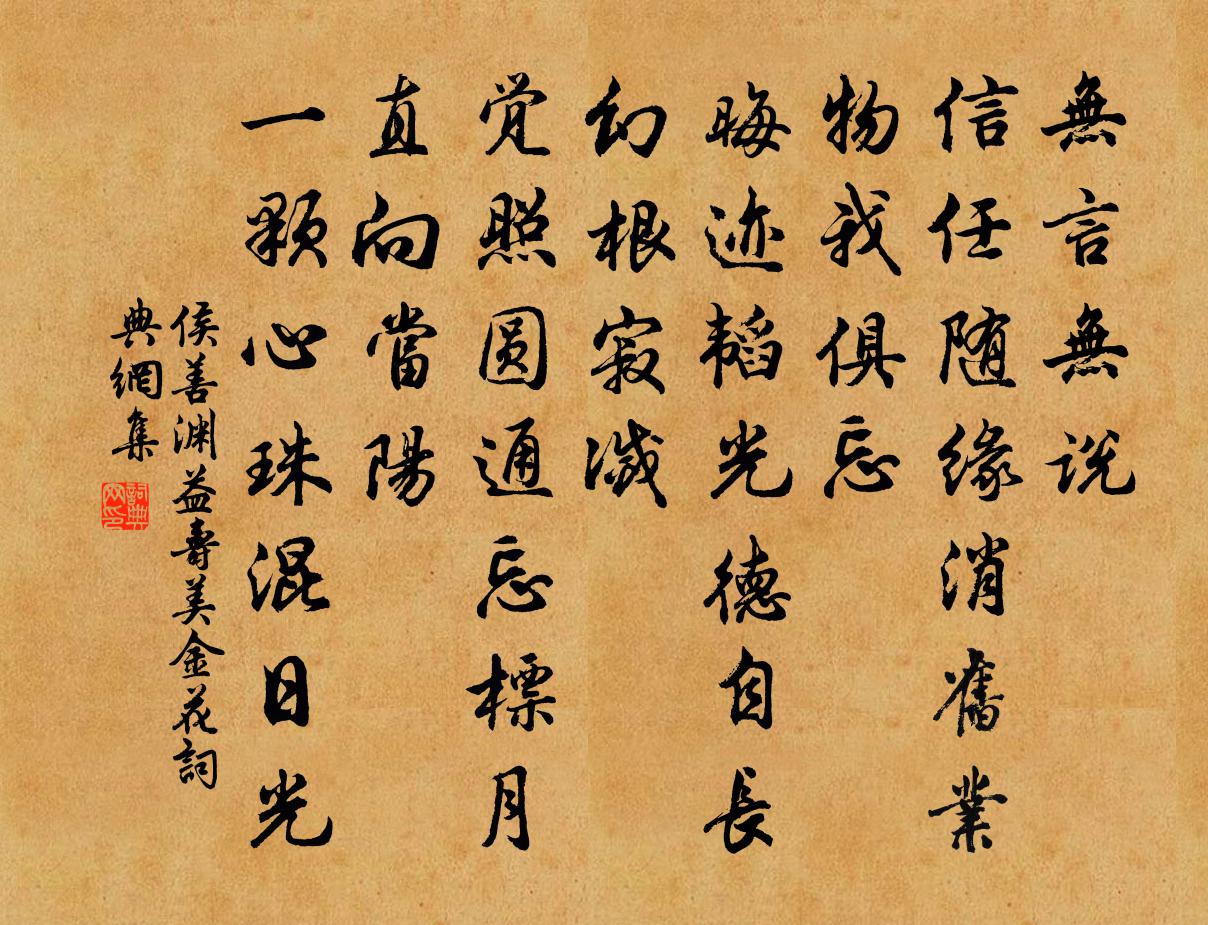 無言無说
信任随缘消舊業
物我俱忘
晦迹韬光德自長
幻根寂滅
觉照圆通忘標月
直向當陽
一顆心珠混日光
侯善渊益壽美金花詞
典網集
詞典
网印